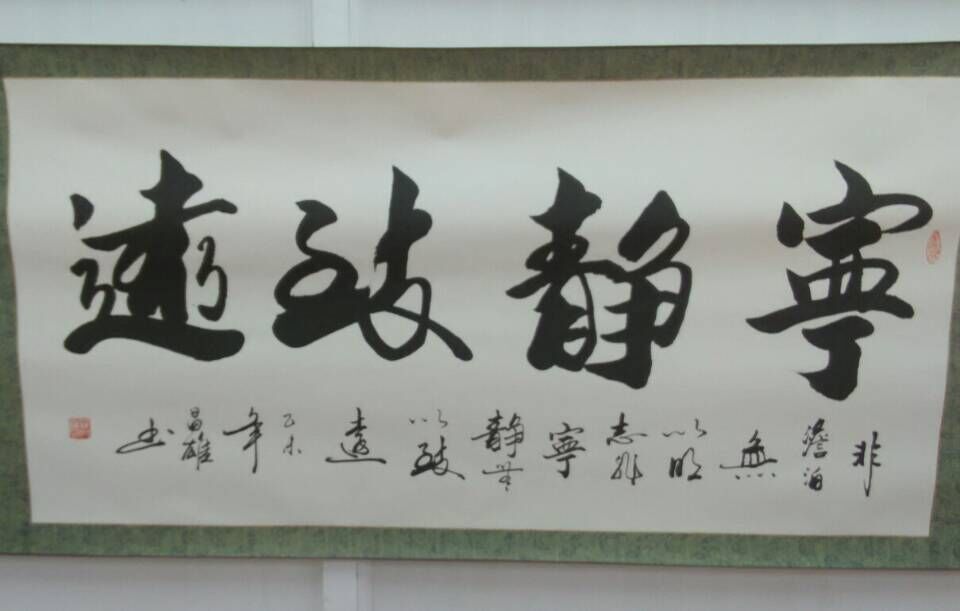 寧靜致遠
非澹泊無以明志非寧靜無以致遠
乙未年昌雄书